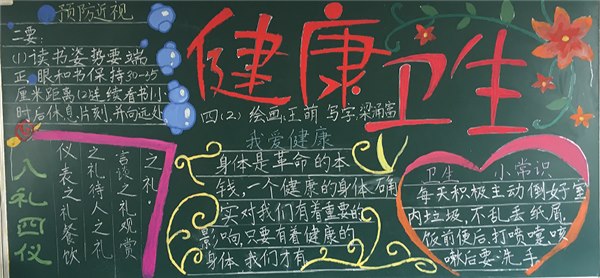 健康卫生
预防近视
二要:
(1)读书姿势要端
正,眼和书保持30-45
厘米距离(2)连续看书1小
时后休息片刻,并向远处
四(2) 绘画:王萌 写字:梁涌富
八礼四仪
仪表之礼餐饮
之礼待人之礼
言谈之礼观赏
之礼.
我爱健康
身体是革命的本
钱,一个健康的身体,确
实对我们有着重要的
影响,只要有着健康的
身体,我们才有
卫生 小常识
每天积极主动倒好室
内垃圾,不乱丢纸屑,
饭前便后,打喷嚏咳
嗽后要洗手.